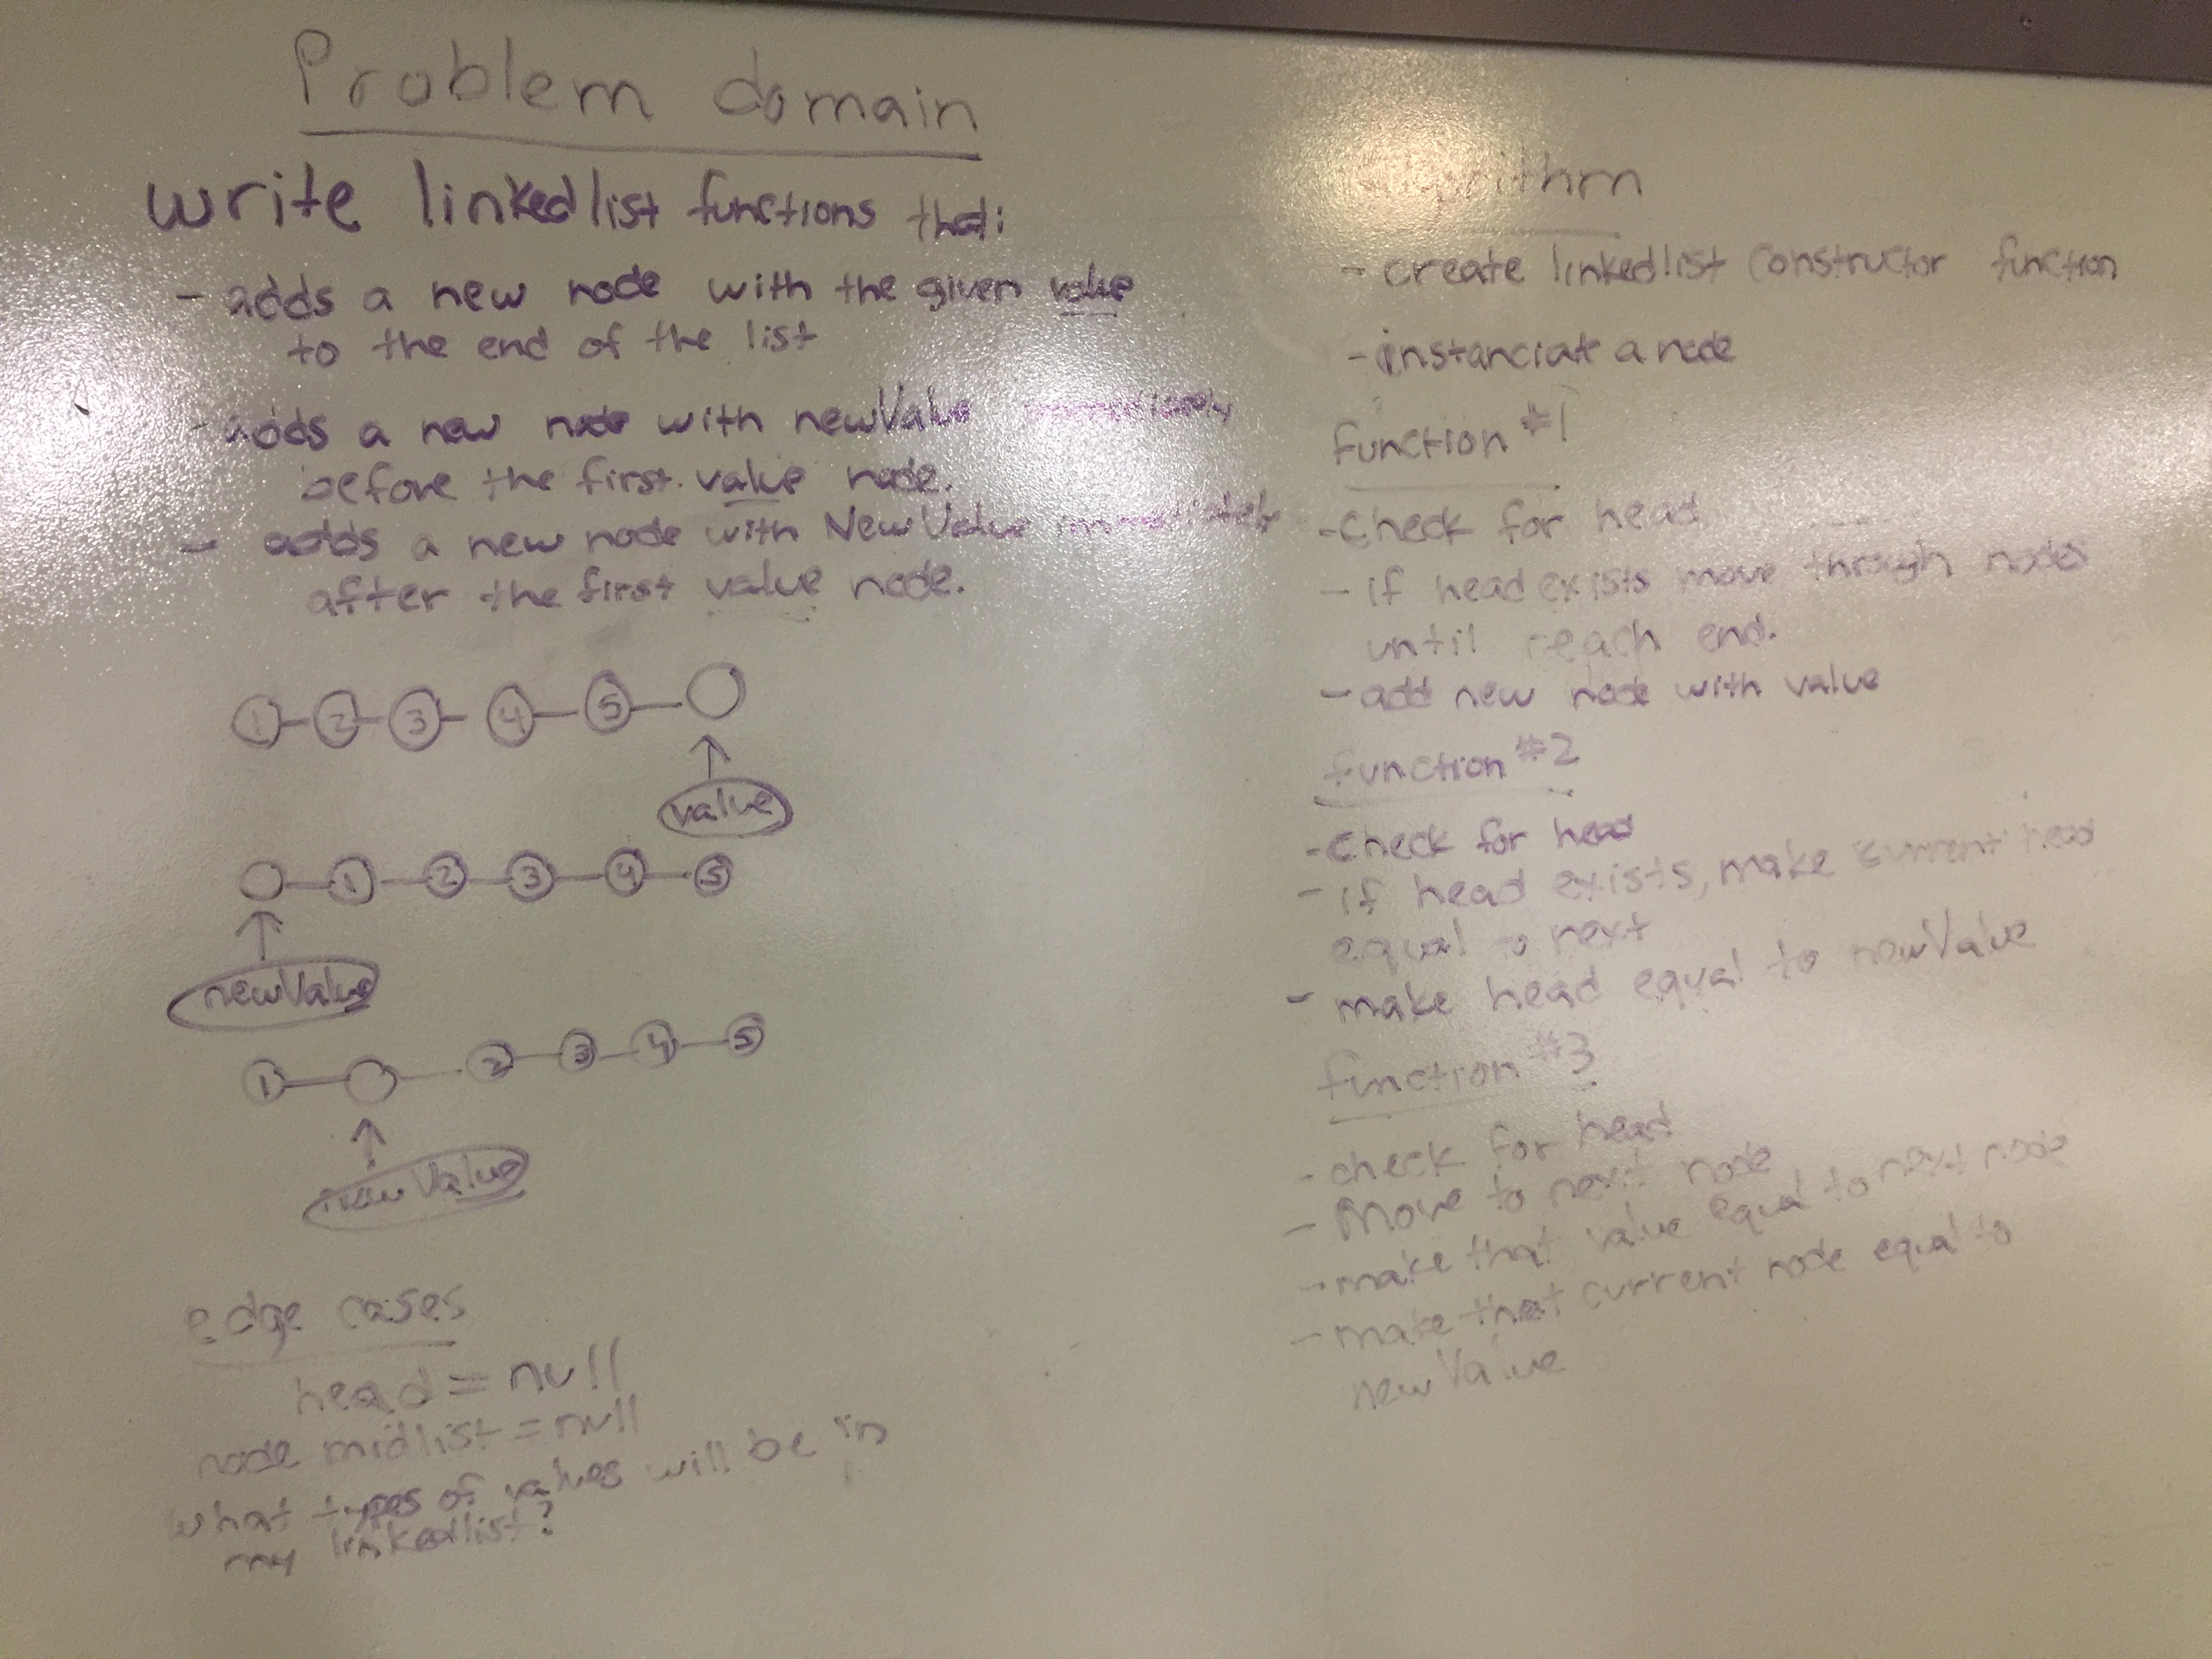 Problem domain
write linkedlist functions that:
- adds a new node with the given value
to the end of the list
- adds a new node with newValue immediately
before the first value node.
- adds a new node with NewValue immediately
after the first value node.
1 2 3 4 5
value
1 2 3 4 5
newValue
1 2 3 4 5
newValue
edge cases
head = null
node midlist = null
what types of values will be in
my linkedlist?
Algorithm
- create linkedlist constructor function
- instanciate a node
function #1
- check for head
- if head exists move through nodes
until reach end.
- add new node with value
function #2
- check for head
- if head exists, make current head
equal to next
- make head equal to newValue
function #3
- check for head
- Move to next node
- make that value equal to next node
- make that current node equal to
newValue